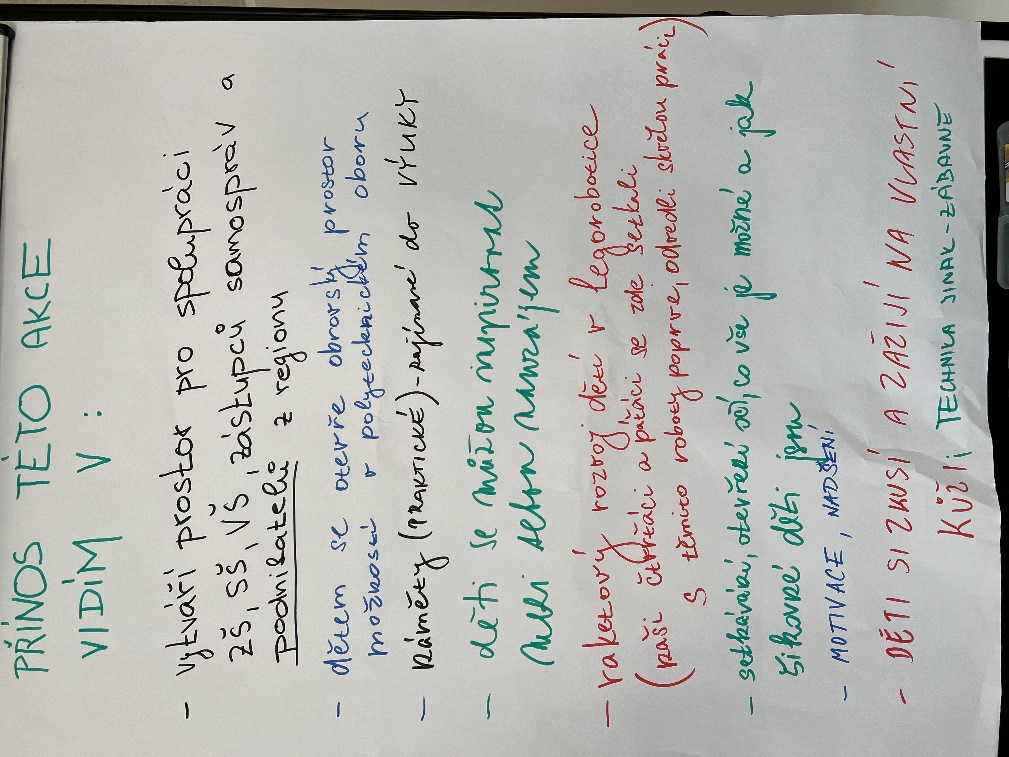 PŘÍNOS TÉTO AKCE
VIDÍM V:
- vytváří prostor pro spolupráci
ZŠ, SŠ, VŠ, zástupců samospráv a
podnikatelů z regionu
- dětem se otevře obrovský prostor
možností v polytechnickém oboru
- náměty (PRAKTICKÉ) - zajímavé do VÝUKY
- děti se můžou inspirovat
mezi sebou navzájem
- raketový rozvoj dětí v legorobotice
(naši čtvrťáci a páťáci se zde setkali
s těmito roboty poprvé, odvedli skvělou práci)
- setkávání, otevření očí, co vše je možné a jak
šikovné děti jsou
- MOTIVACE, NADŠENÍ
- DĚTI SI ZKUSÍ A ZAŽIJÍ NA VLASTNÍ
KŮŽI TECHNIKA JINAK - ZÁBAVNĚ